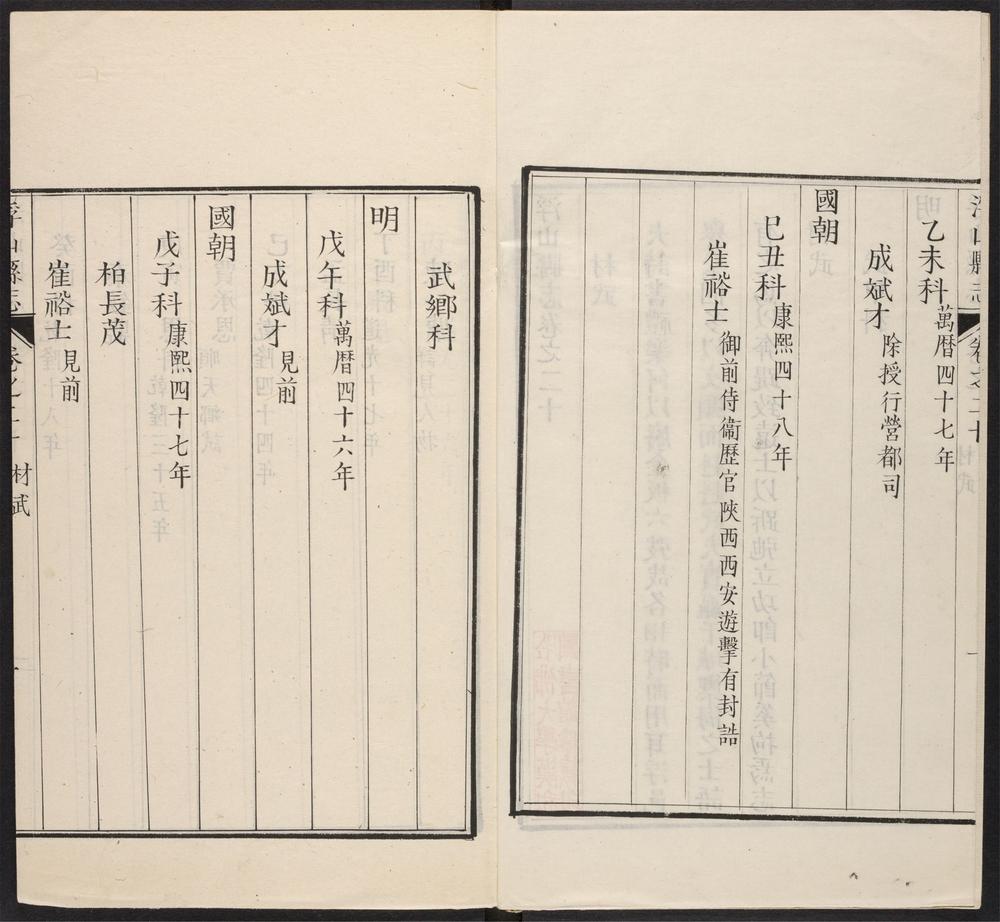 浮山縣志 卷之二十
乙未科 萬曆四十七年
成斌才 除授行營都司
國朝
巳丑科 康熙四十八年
崔裕士 御前侍衞歷官陜西西安遊擊有封誥
武鄉科
明
戊午科 萬曆四十六年
成斌才 見前
國朝
戊子科 康熙四十七年
柏長茂
崔裕士 見前
浮山縣志 卷之二十 材武 一